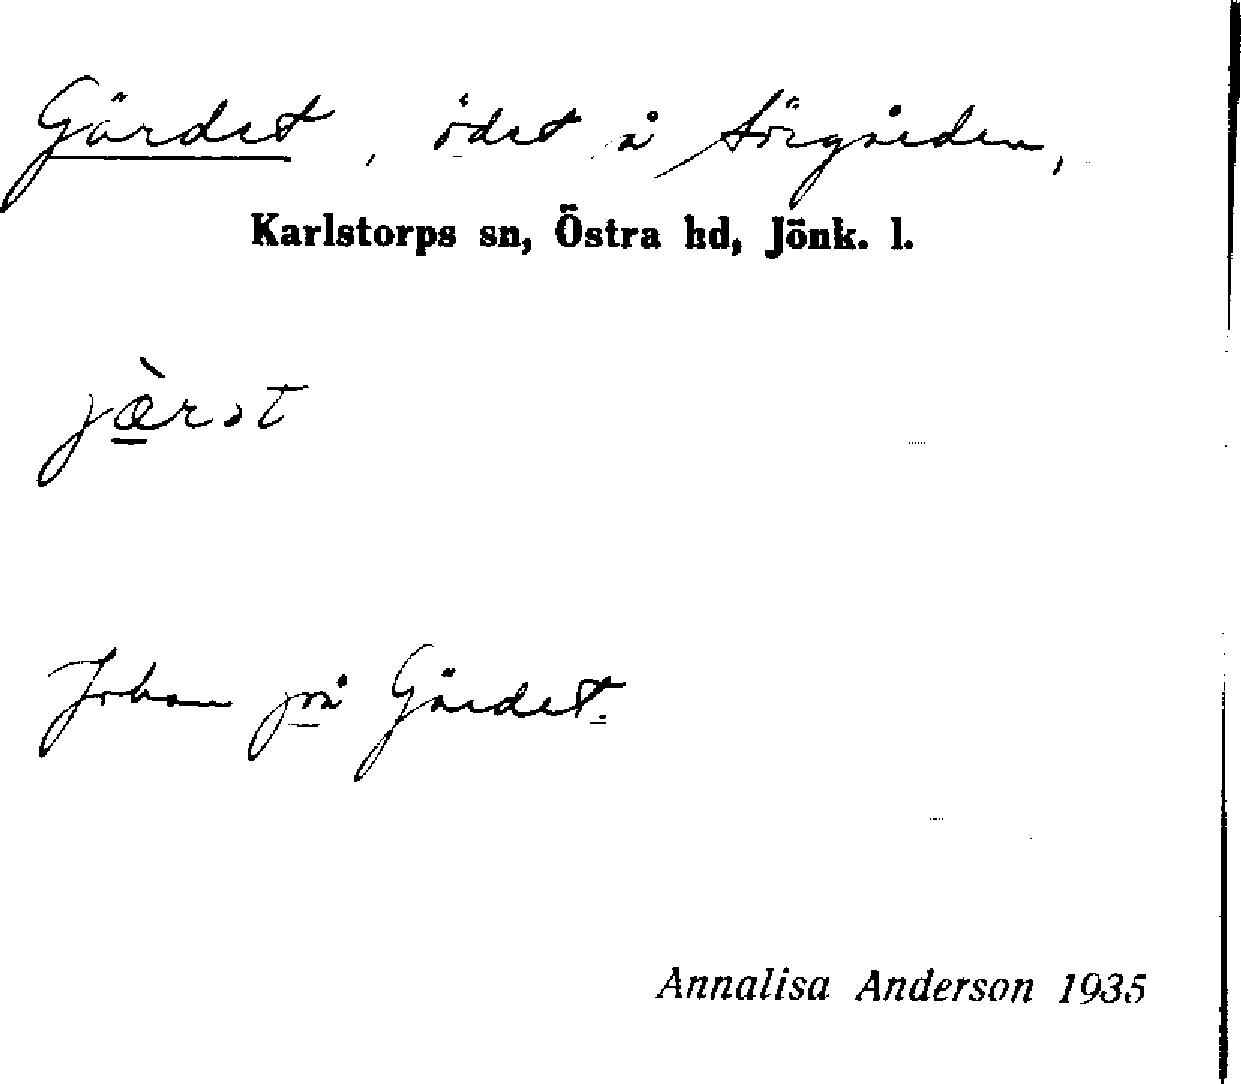 Gärdet, ödet å Sörgården,
Karlstorps sn, Östra hd, Jönk. l.
jæ̀rət
Johan på Gärdet.
Annalisa Anderson 1935